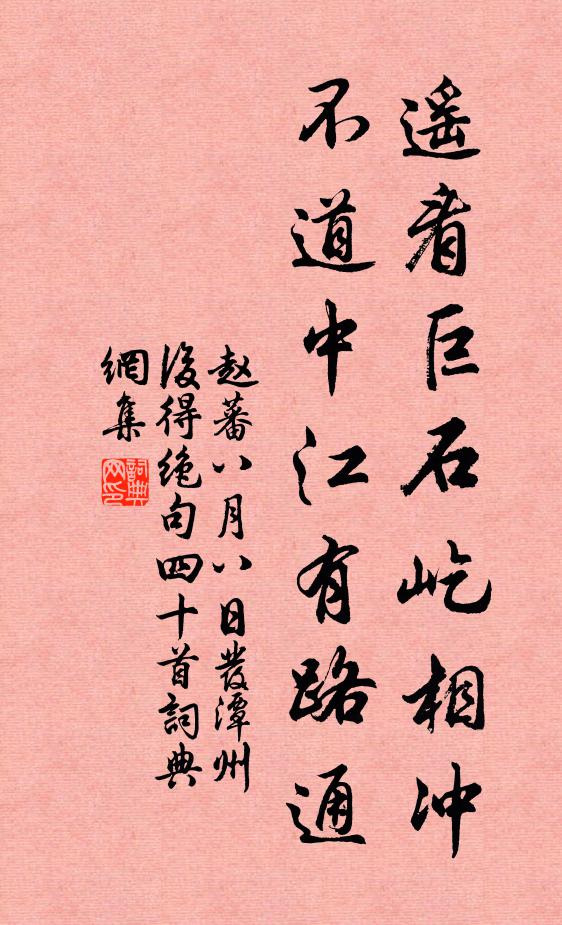 遥看巨石屹相冲
不道中江有路通
赵蕃八月八日發潭州
後得绝句四十首詞典
網集
詞典
网印